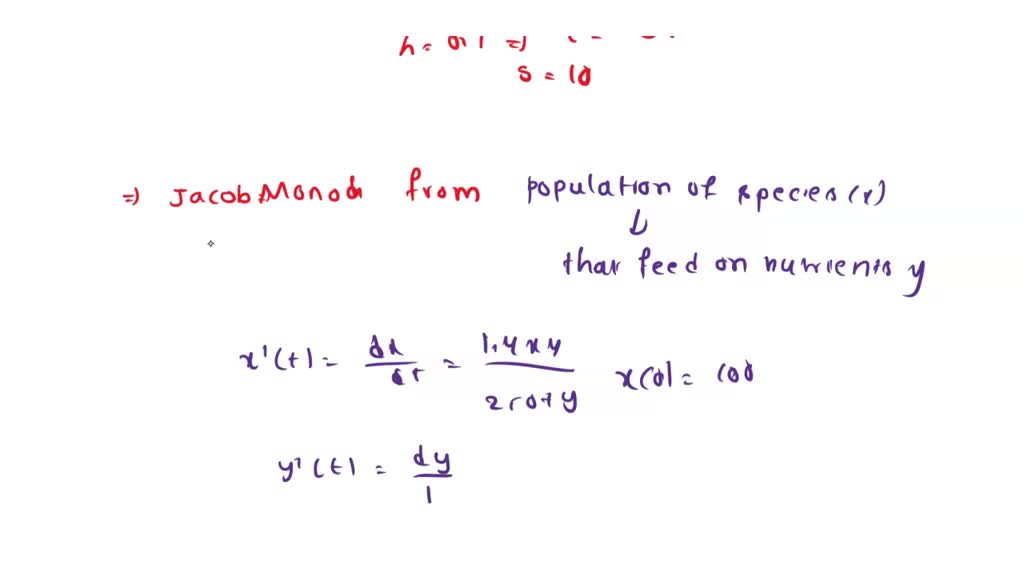 s = 10
=) Jacob Monod from population of species (x)
that feed on nutrients y
x'(t) = dx/dt = 1.4xy/250+y x(0) = 100
y'(t) = dy